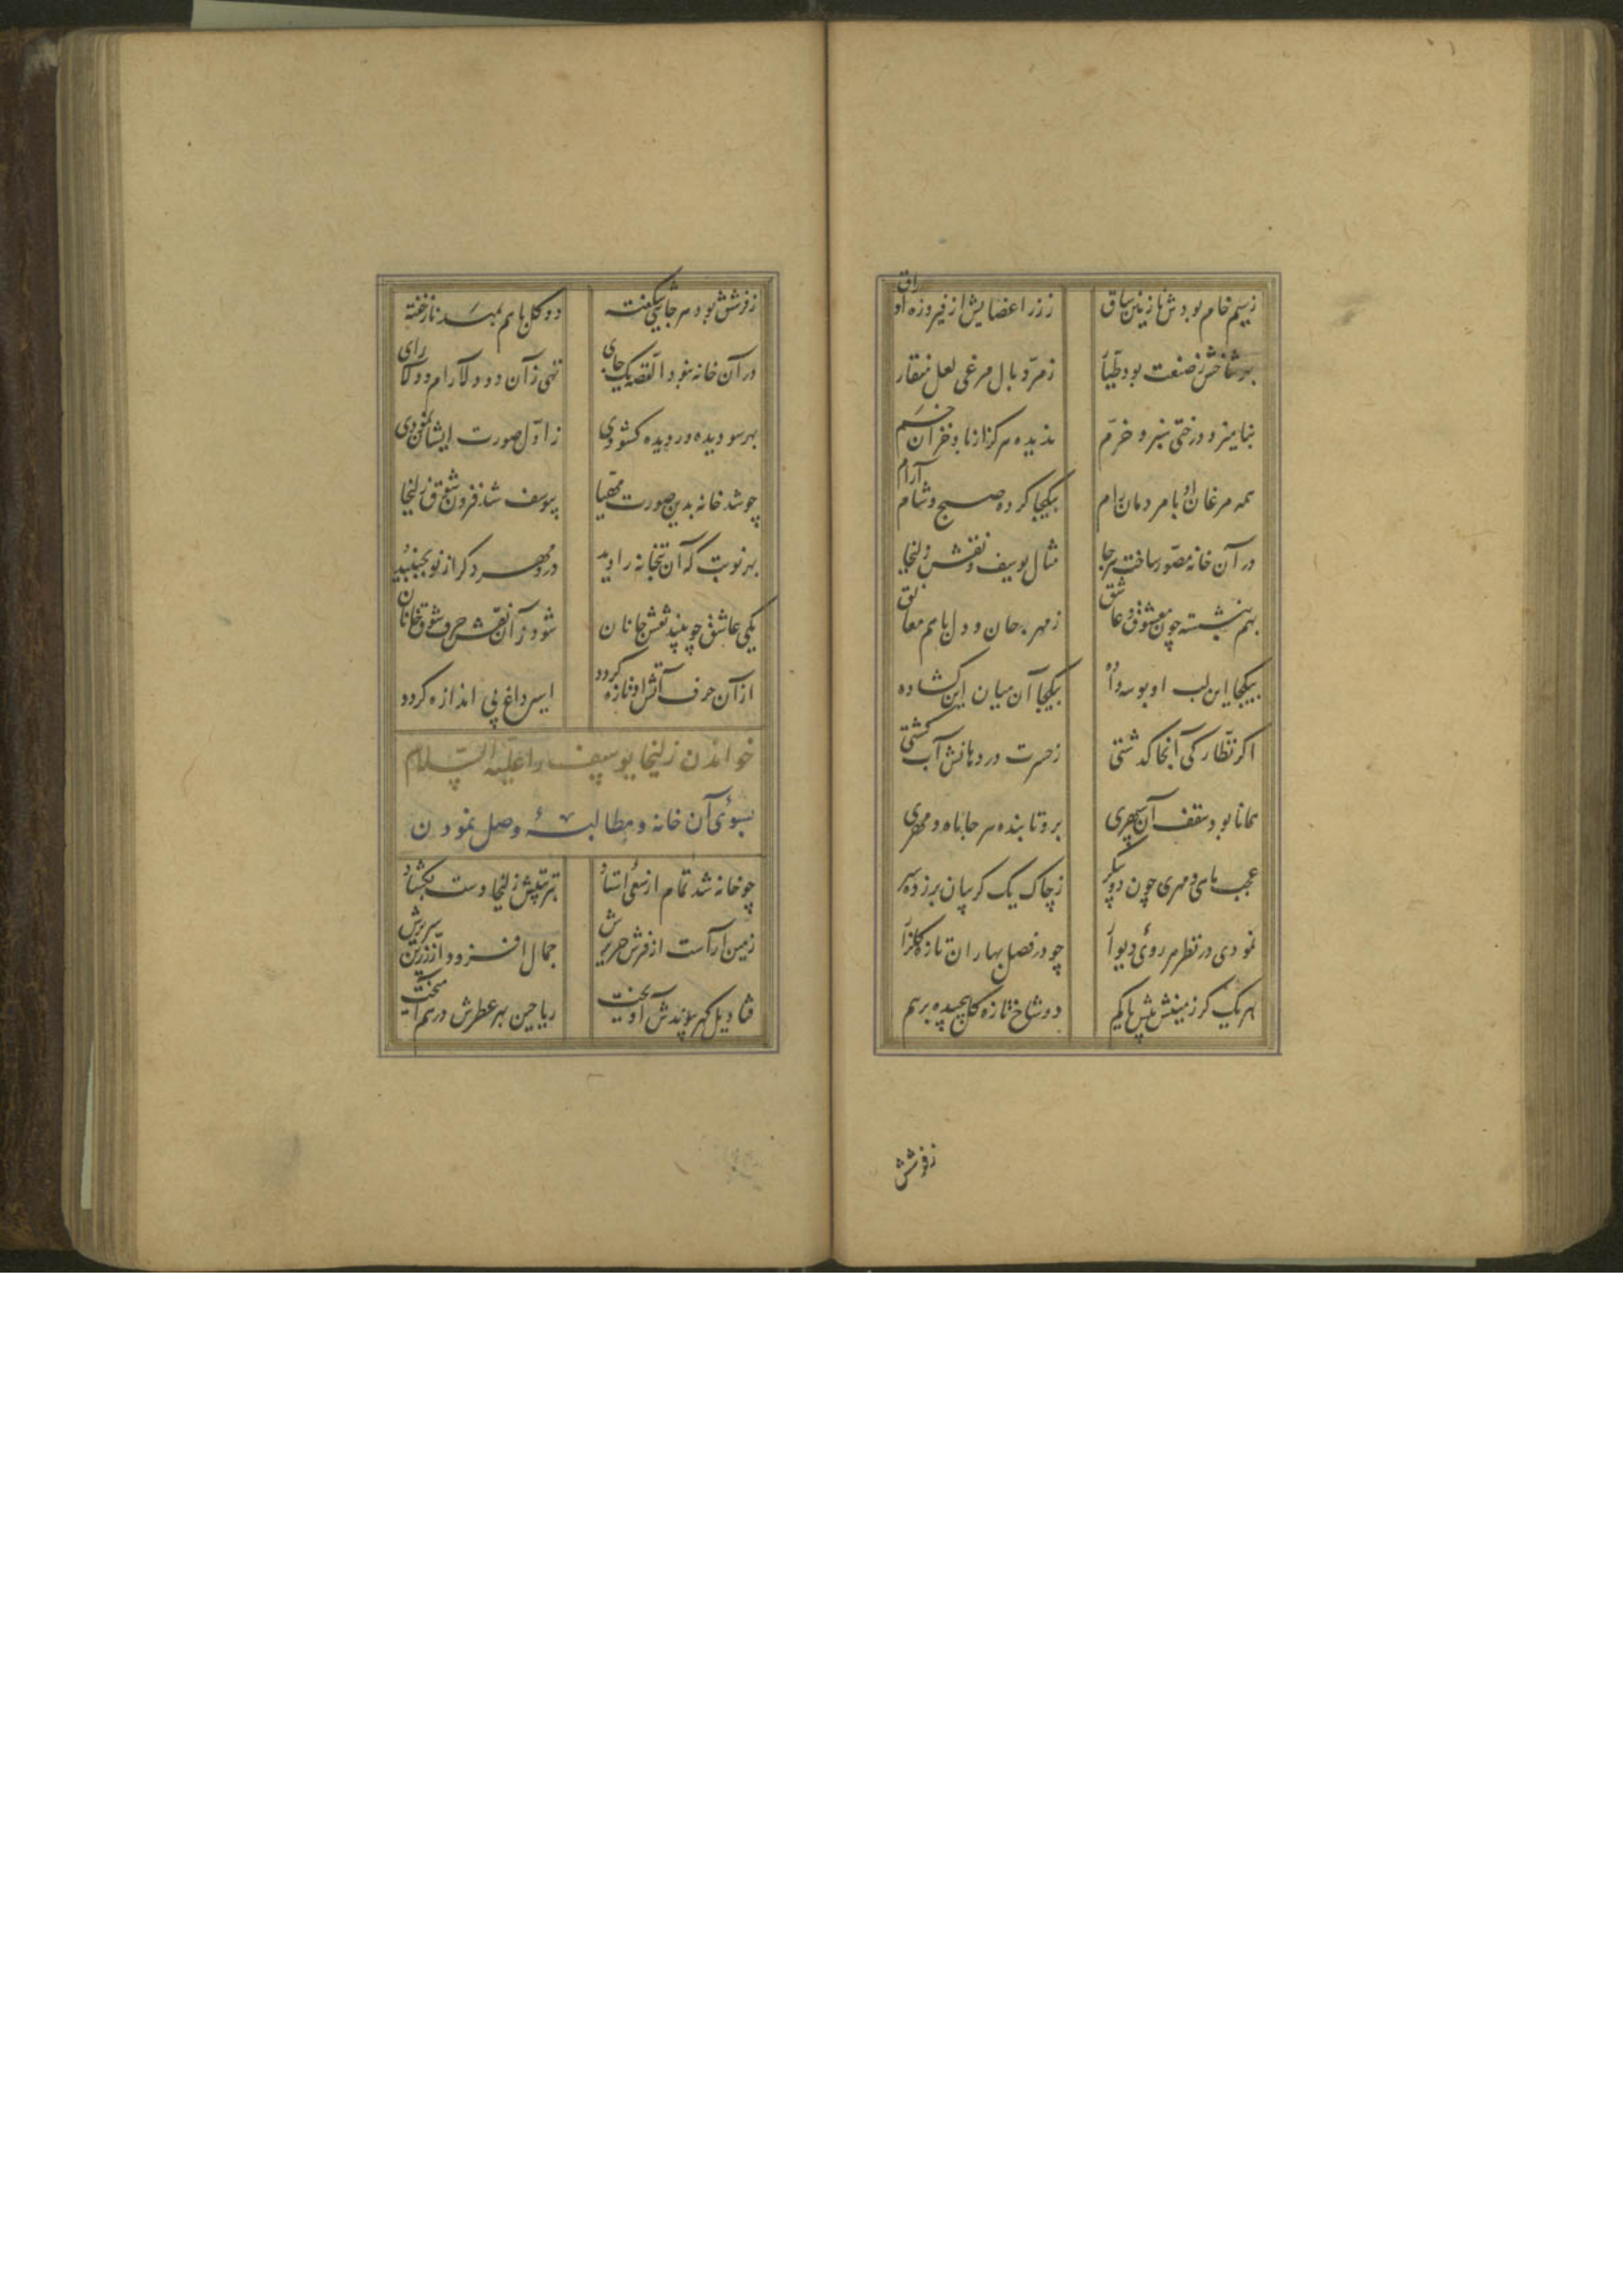 زسیم خام بودش نازنین ساق
ززر اعضایش از فیروزه اوراق
بهر شاخش ز صنعت بود طیار
زمرد بال مرغی لعل منقار
بنامیزد درختی سبز و خرم
ندیده هرگز از باد خزان خم
همه مرغان او با مردمان رام
بیکجا کرده صبح و شام آرام
در آن خانه مصور ساخت هرجا
مثال یوسف و نقش زلیخا
بهم بنشسته چون معشوق و عاشق
ز مهر جان و دل با هم معانق
بیکجا این لب او بوسه داده
بیکجا آن میان این کشاده
اکر نظارکی آنجا کدشتی
ز حسرت در دهانش آب کشتی
همانا بود سقف آن سپهری
برو تابنده هر جا ماه و مهری
عجب ماهی و مهری چون دو پیکر
ز چاک یک کریبان برزده سر
نمودی در نظر هر روی دیوار
چو در فصل بهاران تازه کلزار
بهر یک کز زمینش پیش یا کم
دو شاخ تازه کل پیچیده برهم
زفرشش
زفرشش بود هر جا بیشکفته
دو کل با هم بمهد ناز خفته
در آن خانه نبود القصه یک جای
تهی زآن دو دلارام دو دلارای
بهر سو دیده ور دیده کشودی
ز اول صورت ایشان نمودی
چو شد خانه بدین صورت مهیا
بیوسف شد فزون شوق زلیخا
بهر نوبت که آن بتخانه را دید
درو مهر دکر از نو بجنبید
بلی عاشق چو بیند نقش جانان
شود زآن نقش حرف شوق خوانان
از آن حرف آتش او تازه کردد
اسیر داغ بی اندازه کردد
خواندن زلیخا یوسف را علیه السلام
بسوئ آن خانه و مطالبهٔ وصل نمودن
چو خانه شد تمام از سعی استاد
بتزیینش زلیخا دست بکشاد
زمین آراست از فرش حریرش
جمال افزود از زرین سریرش
قنادیل کهر پیوندش آویخت
ریاحین بهر عطرش درهم آمیخت